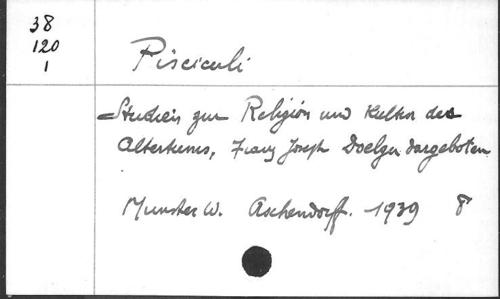 38
120
1
Pisciculi
Studien zur Religion und Kultur des
Altertums, Franz Joseph Doelger dargeboten
Munster W. Aschendorff. 1939 8°